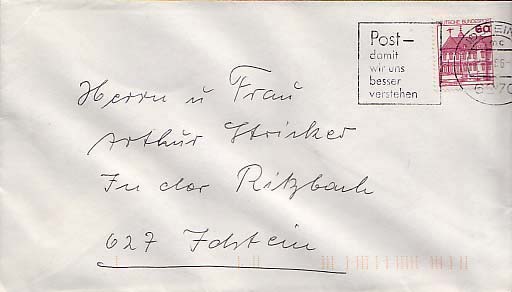 Post-
damit
wir uns
besser
verstehen
DEUTSCHE BUNDESPOST
60
Herrn u Frau
Arthur Stricker
In der Ritzbach
627 Idstein